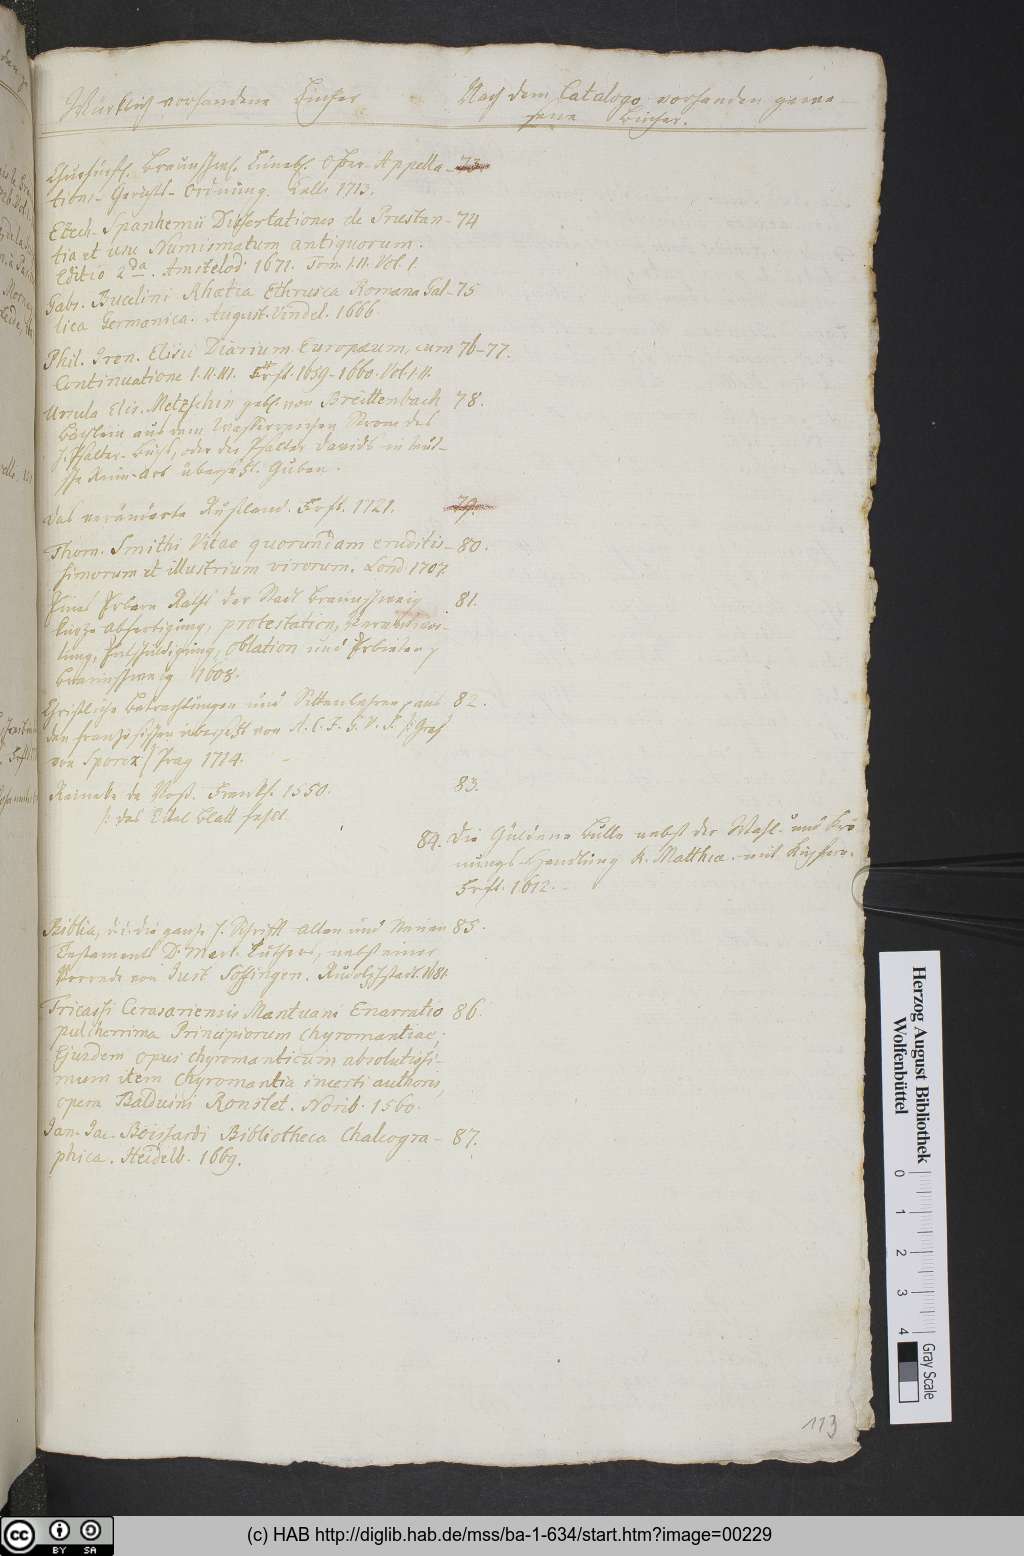 Würklich vorhandene Bücher
Nach dem Catalogo vorhanden gewe-
sene Bücher.
Churfürstl. Braunschw. Lüneb. Ober-Appella- 73.
tions-Gerichts-Ordnung. Zelle 1713.
Ezech. Spanhemii Dissertationes de Præstan- 74
tia et usu Numismatum antiquorum.
Editio 2da. Amstelod. 1671. Tom. I. II. Vol. 1.
Gabr. Bucelini Rhætia Ethrusca Romana Gal- 75
lica Germanica. August. Vindel. 1666.
Phil. Iren. Elisii Diarium Europæum, cum 76-77.
Continuatione I. II. III. Frft. 1659-1660. Vol. I. II.
Ursula Elis. Metzschin geb. von Breittenbach 78.
aus dem Strome des
Psalter-Buchs, oder der Psalter Davids in teut-
sche Reim-Art übersetzt. Guben.
Das veränderte Rußland. Frft. 1721. 79.
Thom. Smithi Vitae quorundam eruditis- 80.
simorum et illustrium virorum. Lond. 1707.
Eines Erbarn Raths der Stadt Braunschweig 81.
kurze Abfertigung, protestation,
Entschuldigung, oblation und Erbieten
Braunschweig 1608.
Christliche Betrachtungen und Sittenlehren aus 82.
den französischen übersetzt von A. C. F. G. V. S. /: Graf
von Sporck / Prag 1714.
Reineke de Voß. Frankf. 1550. 83.
/: das Titel Blatt fehlt
84. Die Güldene Bulle nebst der Wahl- und Krö-
nungs-Handlung K. Matthiæ. mit Kupfern.
Frft. 1612.
Biblia, d. i. die gantze h. Schrifft Alten und Neuen 85.
Testaments D. Mart. Luthers, nebst einer
Vorrede von Just Söffingen. Rudolphstadt.
Tricassi Cerasariensis Mantuani Enarratio 86.
pulcherrima Principiorum Chyromantiae;
Ejusdem opus chyromanticum absolutissi-
mum item Chyromantia incerti authoris,
opera Balduini Ronslet. Norib. 1560.
Jan. Jac. Boissardi Bibliotheca Chalcogra- 87.
phica. Heidelb. 1669.
113
Herzog August Bibliothek
Wolfenbüttel
0 1 2 3 4
Gray Scale
cc BY SA
(c) HAB http://diglib.hab.de/mss/ba-1-634/start.htm?image=00229